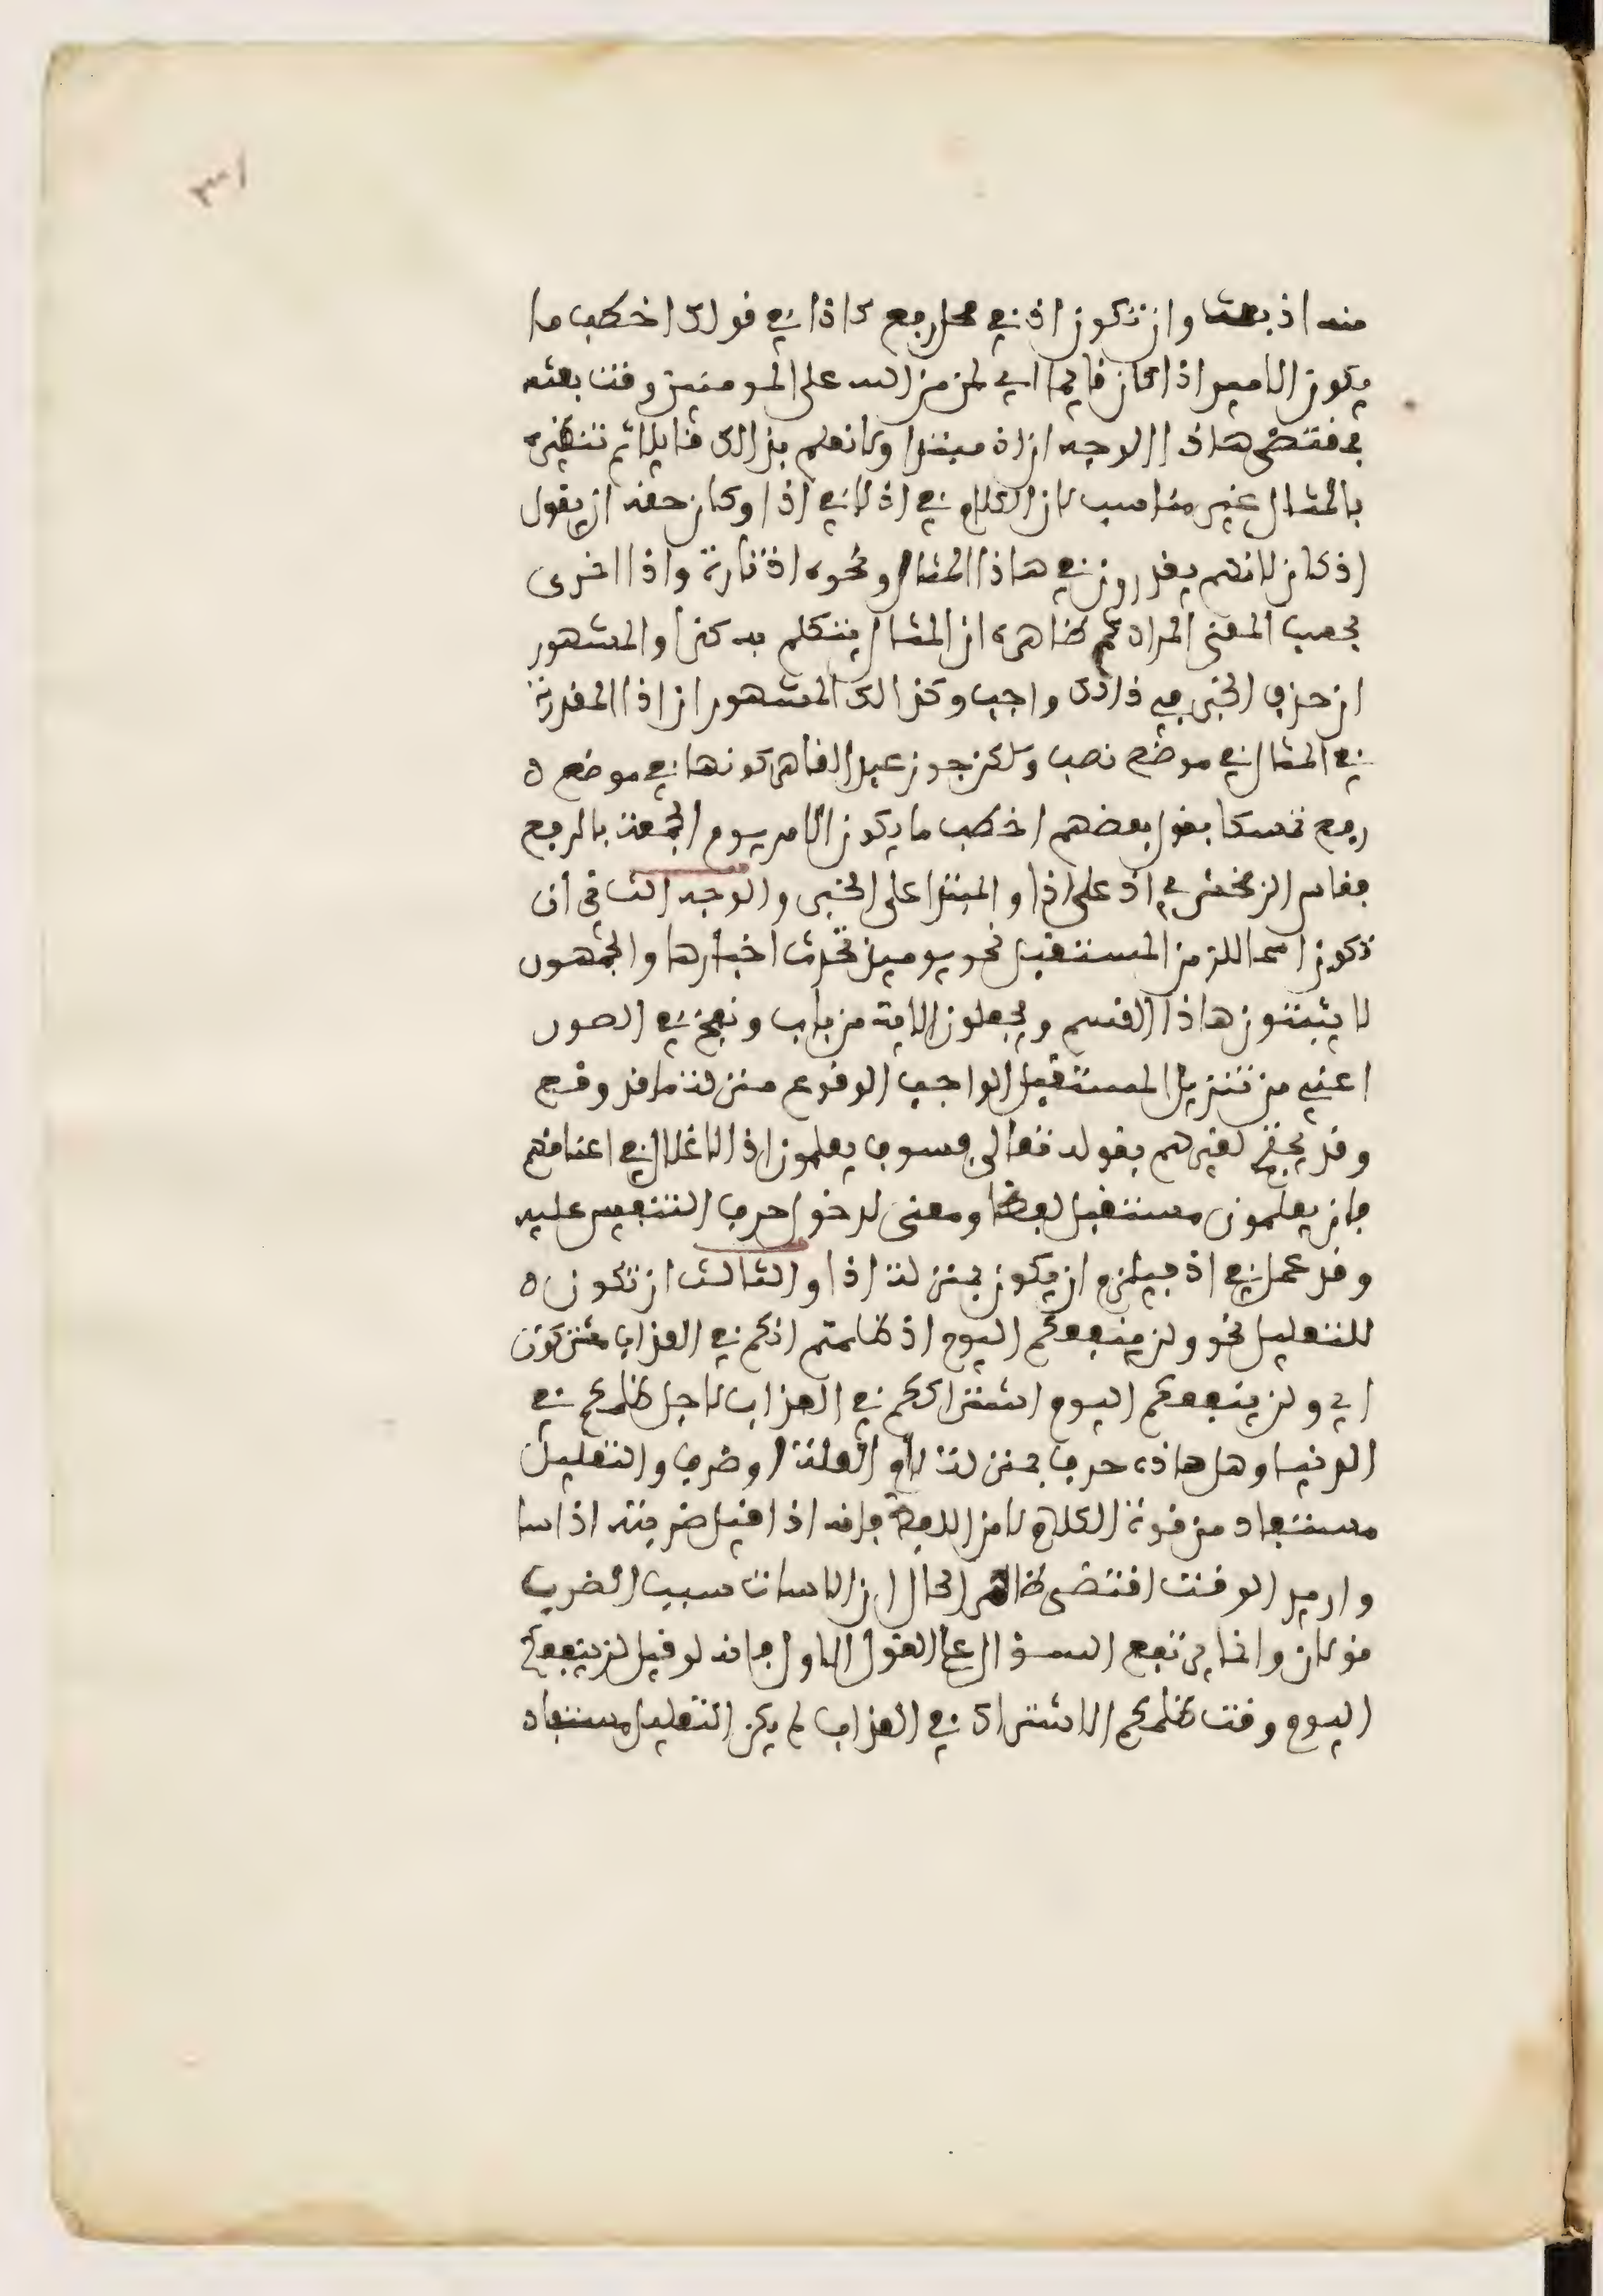 ٣١
منه اذ بعث وان تكون اذ في محل رفع كاذا في قولك اخطب ما
يكون الامير اذا كان قايما اي لمن من الله على المومنين وقت بعثه
فمقتضى هاذا الوجه ان اذ مبتدا ولا نعلم بذالك قايلا ثم تنظيره
بالمثال غير مناسب لان الكلام في اذ لا في اذا وكان حقه ان يقول
اذ كان لانهم يقدرون في هاذا المثال ونحوه اذ تارة واذا اخرى
بحسب المعنى المراد ثم ظاهره ان المثال يتكلم به كذا والمشهور
ان حذف الخبر في ذالك واجب وكذالك المشهور ان اذا المقدرة
في المثال في موضع نصب ولكن جوز عبد القاهر كونها في موضع ه
رفع تمسكا بقول بعضهم اخطب ما يكون الامير يوم الجمعة بالرفع
فقاس الزمخشري اذ على اذا والمبتدا على الخبر والوجه الثاني ان
تكون اسما للزمن المستقبل نحو يوميذ تحدث اخبارها والجمهور
لا يثبتون هاذا القسم ويجعلون الاية من باب ونفخ في الصور
اعني من تنزيل المستقبل الواجب الوقوع منزلة ما قد وقع
وقد يحتج لغيرهم بقوله تعالى فسوف يعلمون اذ الاغلال في اعناقهم
فان يعلمون مستقبل لفظا ومعنى لدخول حرف التنفيس عليه
وقد عمل في اذ فيلزم ان يكون بمنزلة اذا والثالث ان تكون ه
للتعليل نحو ولن ينفعكم اليوم اذ ظلمتم انكم في العذاب مشتركون
اي ولن ينفعكم اليوم اشتراككم في العذاب لاجل ظلمكم في
الدنيا وهل هاذه حرف بمنزلة لام العلة او ظرف والتعليل
مستفاد من قوة الكلام لا من اللفظ فانه اذا قيل ضربته اذ اسا
واريد الوقت اقتضى ظاهر الحال ان الاساة سبب الضرب
قولان وانما يرتفع السؤال على القول الاول فانه لو قيل لن ينفعكم
اليوم وقت ظلمكم الاشتراك في العذاب لم يكن التعليل مستفاد